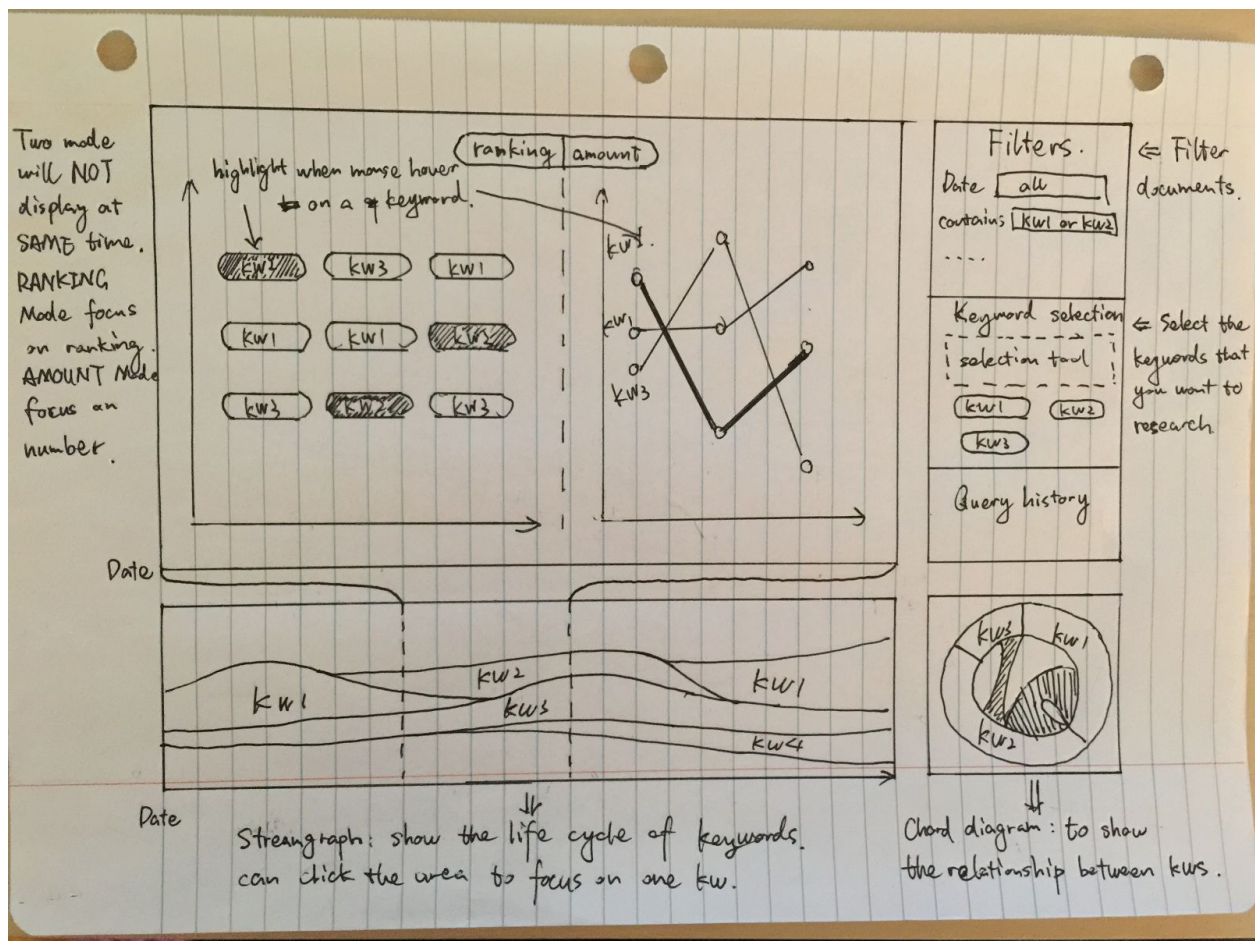 Two mode
will NOT
display at
SAME time.
RANKING
Mode focus
on ranking.
AMOUNT Mode
focus on
number.
ranking amount
highlight when mouse hover
on a keyword.
kw2 kw3 kw1
kw1 kw1 kw2
kw3 kw2 kw3
kw1
kw3
Date
Filters.
Date all
contains kw1 or kw2
....
⇐ Filter
documents.
Keyword selection
selection tool
kw1 kw2
kw3
⇐ Select the
keywords that
you want to
research
Query history
kw1
kw2
kw3
kw1
kw4
Date
Streamgraph: show the life cycle of keywords.
can click the area to focus on one kw.
kw3 kw1
kw2
Chord diagram: to show
the relationship between kws.